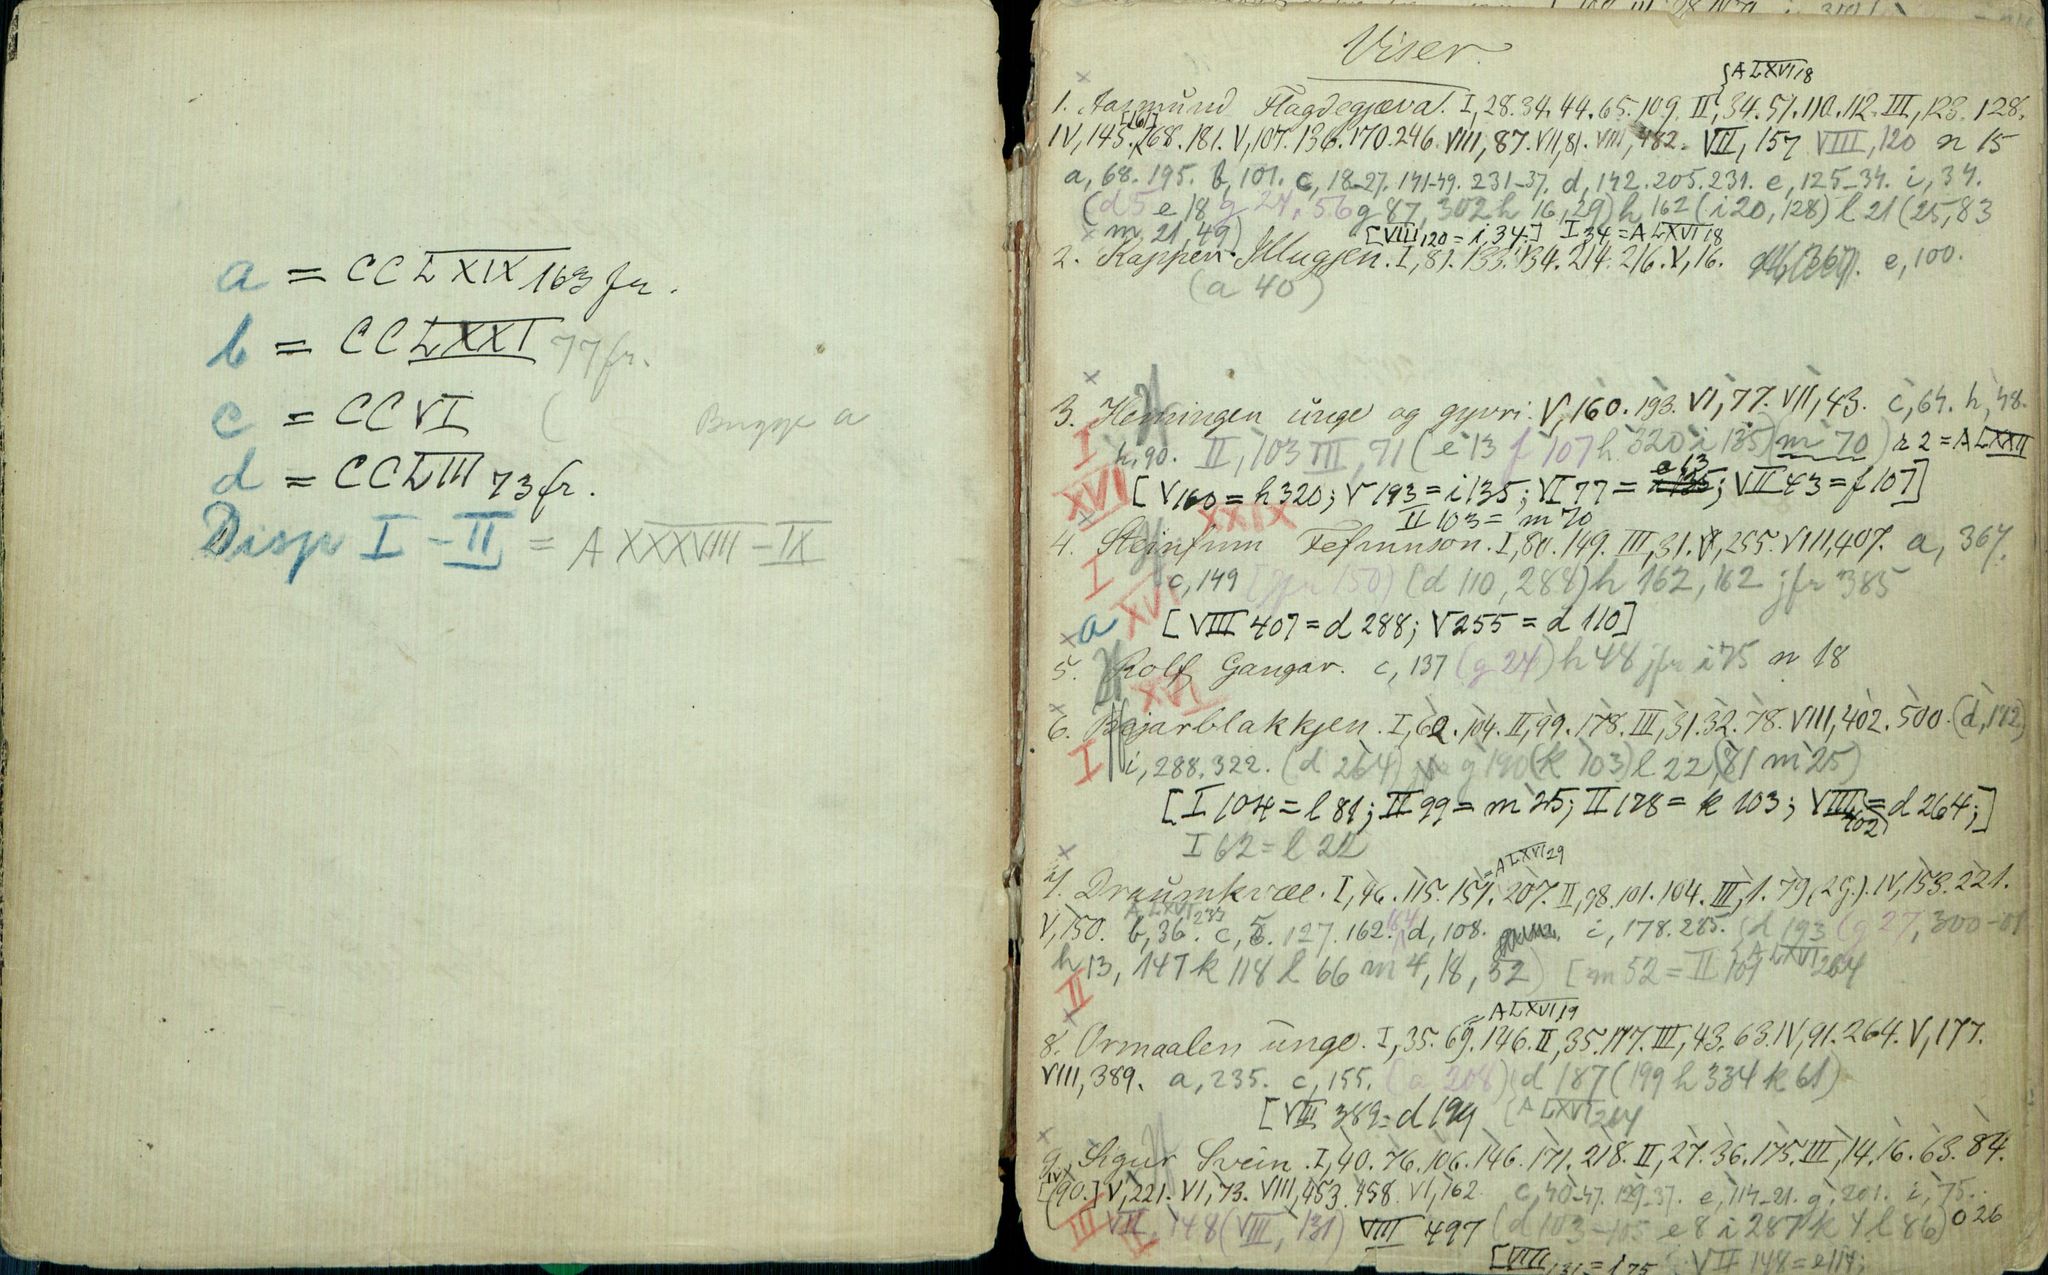 a = CCLXXIX 163 fr.
b = CCLXXXI 77 fr.
c = CCVI ( Bugge a
d = CCLIII 73 fr.
Disp I - II = A XXXVIII - IX
Viser.
{A LXVI 18
1. Aasmund Flagdegjæva. I, 28. 34. 44. 65. 109. II, 34. 57. 110. 112. III, 123. 128.
IV, 145. 168. 181. V, 107. 136. 170. 246. VIII, 87. VII, 81. VIII, 482. VII, 157 VIII, 120 n 15
a, 68. 195. b, 101. c, 18-27. 141-49. 231-37. d, 142. 205. 231. e, 125-34. i, 34.
(d 5 e 18 g 24, 56 g 87, 302 h 16, 29) h 162 (i 20, 128) l 21 (25, 83
m 21, 49) [VIII 120 = i 34.] I 34 = A LXVI 18
2. Kappen Illugjen. I, 81. 133. 134. 214. 216. V, 16. e, 100.
(a 40)
3. Hemingen unge og gyvri. V, 160. 193. VI, 77. VII, 43. c, 64. h, 48.
I h, 90. II, 103 III, 71 (e 13 f 107 h 320 i 135) (m 70) r 2 = A LXXII
XVI [V 160 = h 320; V 193 = i 135; VI 77 = e 13; VII 43 = f 107]
XXIX II 103 = m 70
4. Steinfinn Fefinnson. I, 80. 149. III, 31. V, 255. VIII, 407. a, 367.
I c, 149 (jfr 150) (d 110, 288) h 162, 162 jfr 385
XVI
a [VIII 407 = d 288; V 255 = d 110]
5. Rolf Gangar. c, 137 (g 24) h 48 jfr i 75 n 18
XVI
6. Bejarblakkjen. I, 62. 104. II, 99. 178. III, 31. 32. 78. VIII, 402. 500. (d, 182,
I i, 288. 322. (d 264) g 190 (k 103) l 22 (81 m 25)
[I 104 = l 81; II 99 = m 25; II 178 = k 103; VIII 402 = d 264;]
I 62 = l 22
= A LXVI 29
7. Draumkvæe. I, 46. 115. 157. 207. II, 98. 101. 104. III, 1. 79 (29.). IV, 153. 221.
A LXVI 233
V, 150. b, 36. c, 5. 127. 162. 164 d, 108. i, 178. 285. (d 193 (g 27, 300-01
h 13, 147 k 118 l 66 m 4, 18, 52) [m 52 = II 101 A LXVI 264
II
= A LXVI 19
8. Ormaalen unge. I, 35. 69. 146. II, 35. 177. III, 43. 63. IV, 91. 264. V, 177.
VIII, 389. a, 235. c, 155. (a 208) (d 187 (199 h 334 k 61)
[VIII 389 = d 199 {A LXVI 264
9. Sigur Svein. I, 40. 76. 106. 146. 171. 218. II, 27. 36. 175. III, 14. 16. 63. 84.
[IV 90.] V, 221. VI, 73. VIII, 453. 458. VI, 162 c, 40-47. 129-37. e, 114-21. g, 201. i, 75.
III VII, 148 (VIII, 131) VIII 497 (d 103-105 e 8 i 287 k 4 l 86) o 26
[VIII 131 = i 75 VII 148 = e 114;